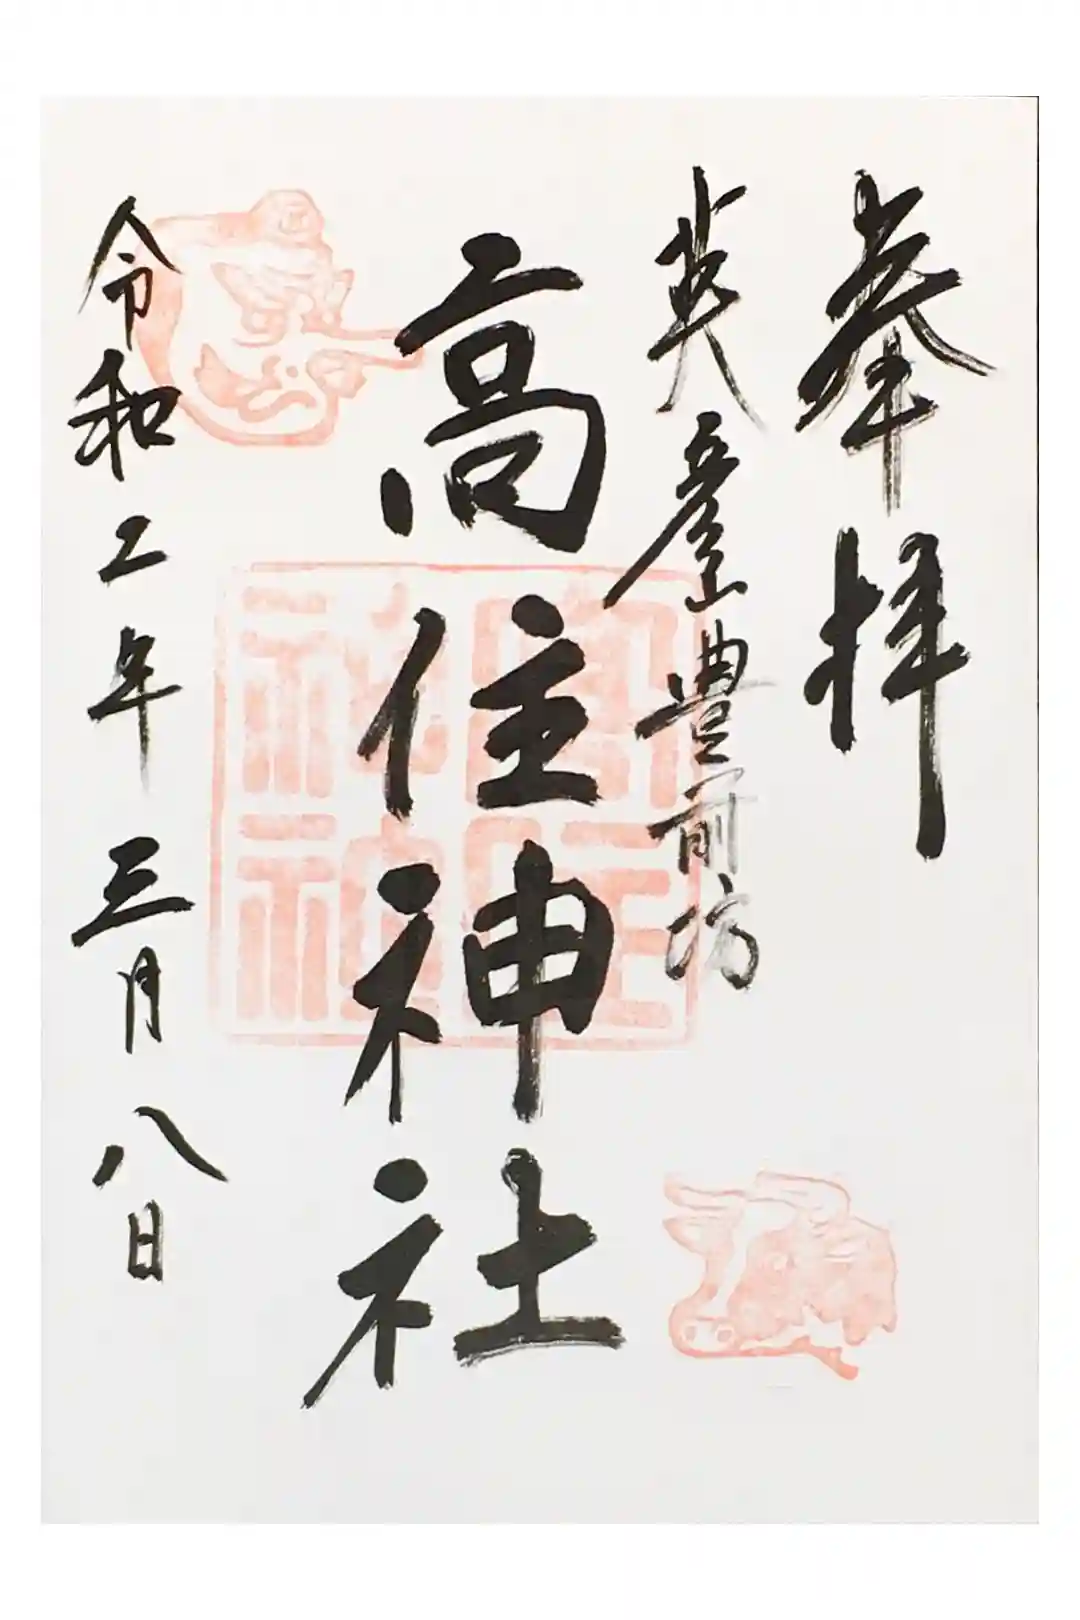 奉拝
英彦山豊前坊
高住神社
令和二年三月八日